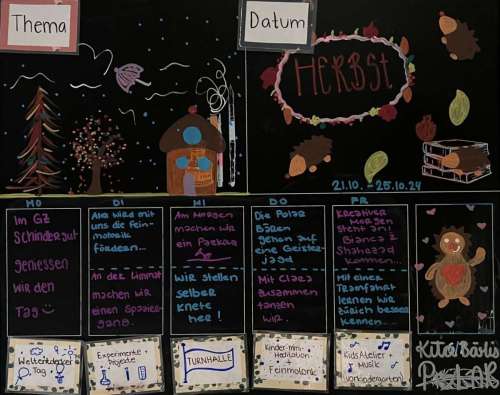 Thema
Datum
HERBST
21.10. - 25.10.24
MO
DI
MI
DO
FR
Im GZ
Schindergut
geniessen
wir den
Tag
uns die Fein-
motorik
fördern...
An der Limmat
machen wir
einen Spazier-
gang.
Am Morgen
machen wir
ein
Wir stellen
selber
Knete
her!
Die Polar
Bären
gehen auf
eine Geister-
Jagd
Mit Clara
zusammen
tanzen
wir.
Kreativer
Morgen
steht an!
Bianca &
kommen...
Mit einer
Tramfahrt
lernen wir
Zürich besser
kennen...
Weltentdecker
Tag
Experimente
Projekte
TURNHALLE
Kinder-Mini-
Meditation
+
Feinmotorik
Kids Atelier
Musik
Vorkindergarten
Kita Bärlis